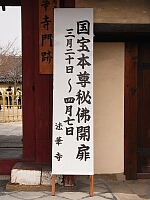 国宝本尊秘佛開扉
三月二十日～四月七日
法華寺
寺門跡